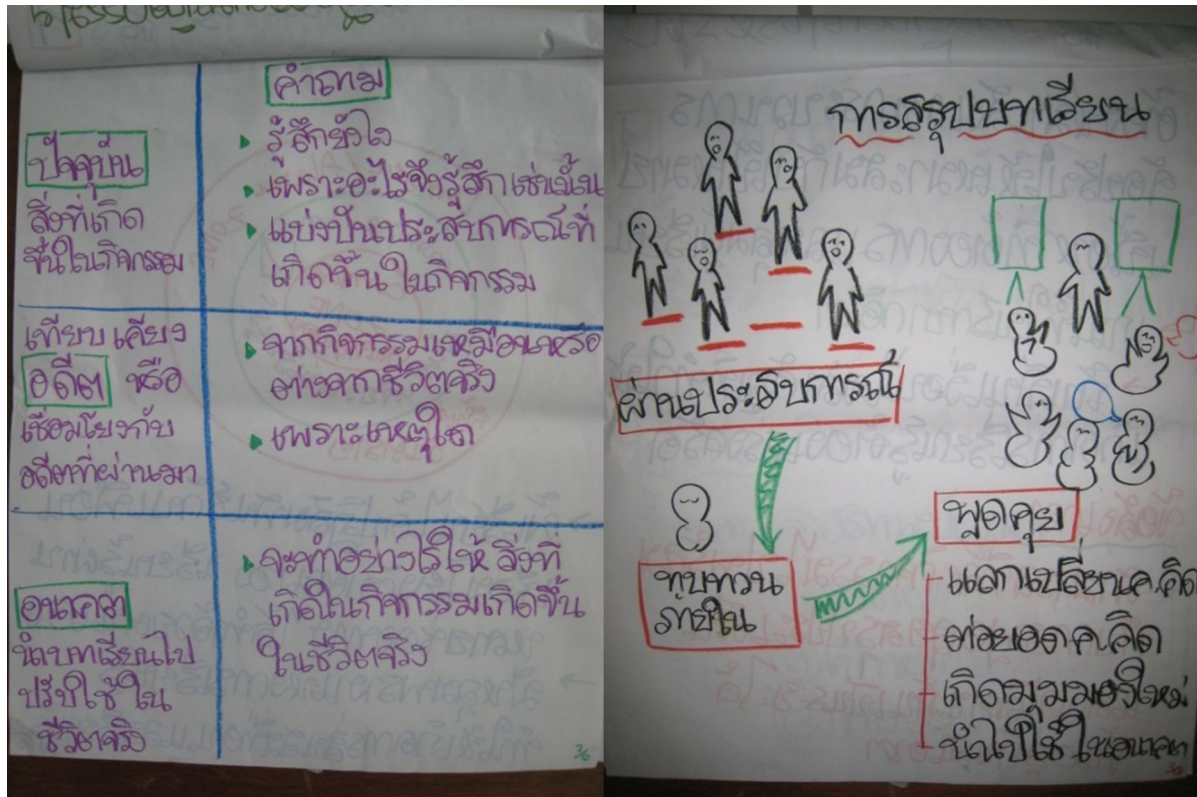 คำถาม
ปัจจุบัน
สิ่งที่เกิด
ขึ้นในกิจกรรม
รู้สึกยังไง
เพราะอะไรจึงรู้สึกเช่นนั้น
แบ่งปันประสบการณ์ที่
เกิดขึ้นในกิจกรรม
เทียบเคียง
อดีต หรือ
เชื่อมโยงกับ
อดีตที่ผ่านมา
จากกิจกรรมเหมือนหรือ
ต่างจากชีวิตจริง
เพราะเหตุใด
อนาคต
นำบทเรียนไป
ปรับใช้ใน
ชีวิตจริง
จะทำอย่างไรให้ สิ่งที่
เกิดในกิจกรรมเกิดขึ้น
ในชีวิตจริง
36
การสรุปบทเรียน
ผ่านประสบการณ์
ทบทวน
ภายใน
พูดคุย
แลกเปลี่ยนค.คิด
ต่อยอด ค.คิด
เกิดมุมมองใหม่
นำไปใช้ในอนาคต
36